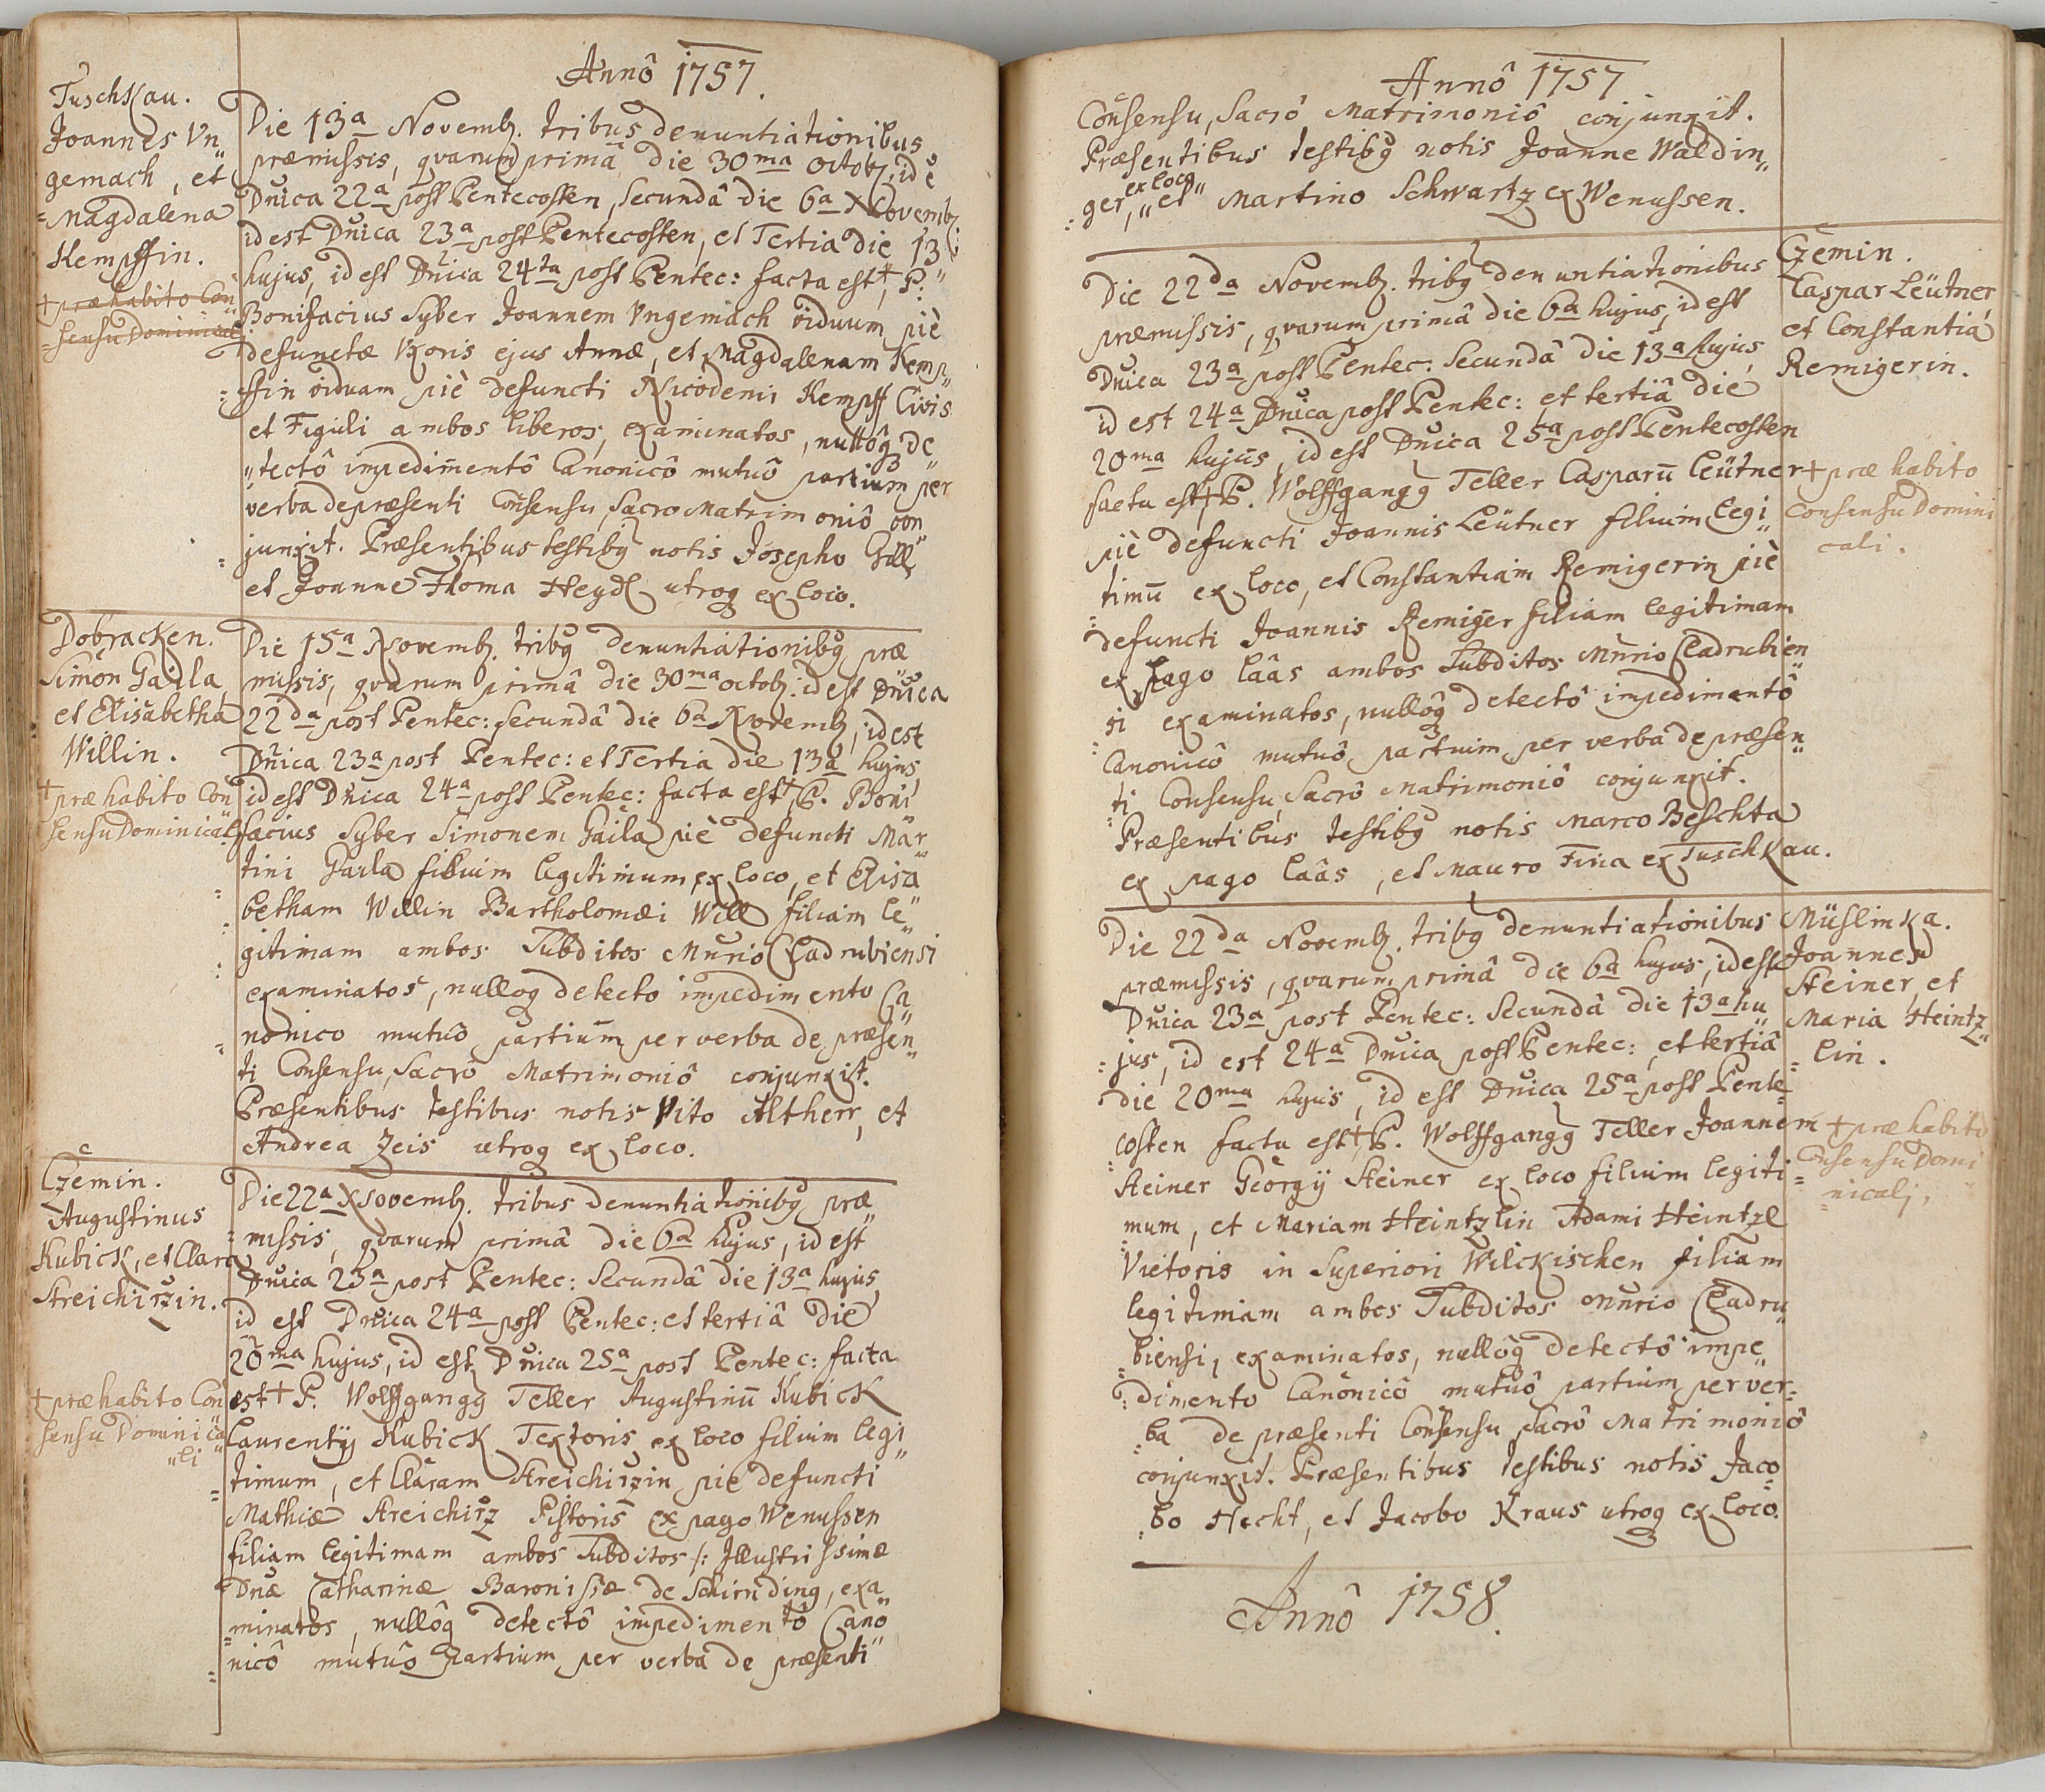 Annô 1757.
Tuschkau.
Joannes Vn„
gemach, et
Magdalena
Kempffin.
+ præhabito Con„
sensu Dominicali
Die 13a Novemb. tribus denuntiationibus
præmissis, qvarum primâ die 30ma octob, id ē
Dnica 22a post Pentecosten, Secundâ die 6a Novemb,
id est Dnica 23a post Pentecosten, et Tertia die 13
hujus, id est Dnica 24ta post Pentec: facta est +, P.
Bonifacius Syber Joannem Vngemach viduum piè
defunctæ Vxoris ejus Annæ, et Magdalenam Kemp„
ffin viduam piè defuncti Nicodemi Kempff Civis
et Figuli ambos liberos, examinatos, nullôq de
„tectô impedimentô Canonicô mutuô partium per
verba de præsenti Consensu, Sacro Matrimoniô con
junxit. Præsentibus testibq notis Josepho Gill
et Joanne Thoma Heydl utroq ex loco.
Dobracken.
Simon Gaila,
et Elisabetha
Willin.
+ præ habito Con
sensu Dominicali
Die 15a Novemb. tribq denuntiationibq præ
missis, qvarum primâ die 30ma octob: id est Dnica
22da post Pentec: Secundâ die 6a Novemb, id est
Dnica 23a post Pentec: et Tertia die 13a hujus,
id est Dnica 24a post Pentec: facta est +, P. Boni
facius Syber Simonem Gaila piè defuncti Mar
tini Gaila filium legitimum ex loco, et Elisa
betham Willin Bartholomæi Will filiam le„
gitimam ambos Subditos Mnrio Cladrubiensi
examinatos, nulloq detecto impedimento Ca„
nonico mutuo partium per verba de præsen„
ti Consensu, Sacrô Matrimoniô conjunxit.
Præsentibus testibus notis Vito Altherr, et
Andrea Zeis utroq ex loco.
Czemin.
Augustinus
Kubick, et Clara
Streichirzin.
+ præhabito Con
sensu Dominica
„li
Die 22a Novemb. tribus denuntiationibq præ„
missis, qvarum primâ die 6a hujus, id est
Dnica 23a post Pentec: Secundâ die 13a hujus,
id est Dnica 24a post Pentec: et tertiâ die
20ma hujus, id est Dnica 25a post Pentec: facta
est + P. Wolffgangq Teller Augustinū Kubick
Laurentÿ Kubick Textoris ex loco filium legi„
timum, et Claram Streichirzin pie defuncti
Mathiæ Streichirz Pistoris ex pago Wenussen
filiam legitimam ambos Subditos /: Illustrissimæ
Dnæ Catharinæ Baronissæ de Schirnding, exa
minatos, nullôq detectô impedimentô Cano„
nicô mutuô partium per verba de præsenti
Annô 1757
Consensu, Sacrô Matrimoniô conjunxit.
Præsentibus testibq notis Joanne Waldin„
ger, „ex loco„ et Martino Schwartz ex Wenussen.
Czemin.
Caspar Leütner,
et Constantia
Remigerin.
+ præ habito
Consensu Domini
cali.
Die 22da Novemb. tribq denuntiationibus
præmissis, qvarum primâ die 6a hujus, id est
Dnica 23a post Pentec: Secundâ die 13a hujus,
id est 24a Dnica post Pentec: et tertiâ die
20ma hujus, id est Dnica 25a post Pentecosten
facta est + P. Wolffgangq Teller Casparū Leütner
piè defuncti Joannis Leütner filium Legi„
timū ex loco, et Constantiam Remigerin piè
defuncti Joannis Remiger filiam legitimam
ex pago Lâas ambos Subditos Mnrio Cladrubien„
si examinatos, nullôq detectô impedimentô
Canonicô mutuô partium per verba de præsen„
ti Consensu, Sacrô Matrimoniô conjunxit.
Præsentibus testibq notis Marco Beschta
ex pago Lâas, et Mauro Fina ex Tuschkau.
Müslinka.
Joannes
Steiner, et
Maria Heintz„
lin.
+ præ habito
Consensu Domi„
nicali,
Die 22da Novemb. tribq denuntiationibus
præmissis, qvarum primâ die 6a hujus, id est
Dnica 23a post Pentec: Secundâ die 13a hu„
jus, id est 24a Dnica post Pentec: et tertiâ
die 20ma hujus, id est Dnica 25a post Pente
costen facta est + P. Wolffgangq Teller Joannem
Steiner Georgÿ Steiner ex loco filium legiti
mum, et Mariam Heintzlin Adami Heintzl
Vietoris in Superiori Wilckischen filiam
legitimam ambos Subditos Mnrio Cladru„
biensi, examinatos, nullôq detectô impe„
dimento Canonicô mutuô partium per ver„
ba de præsenti Consensu, Sacrô Matrimoniô
conjunxit. Præsentibus testibus notis Jaco
bo Hecht, et Jacobo Kraus utroq ex loco.
Annô 1758.